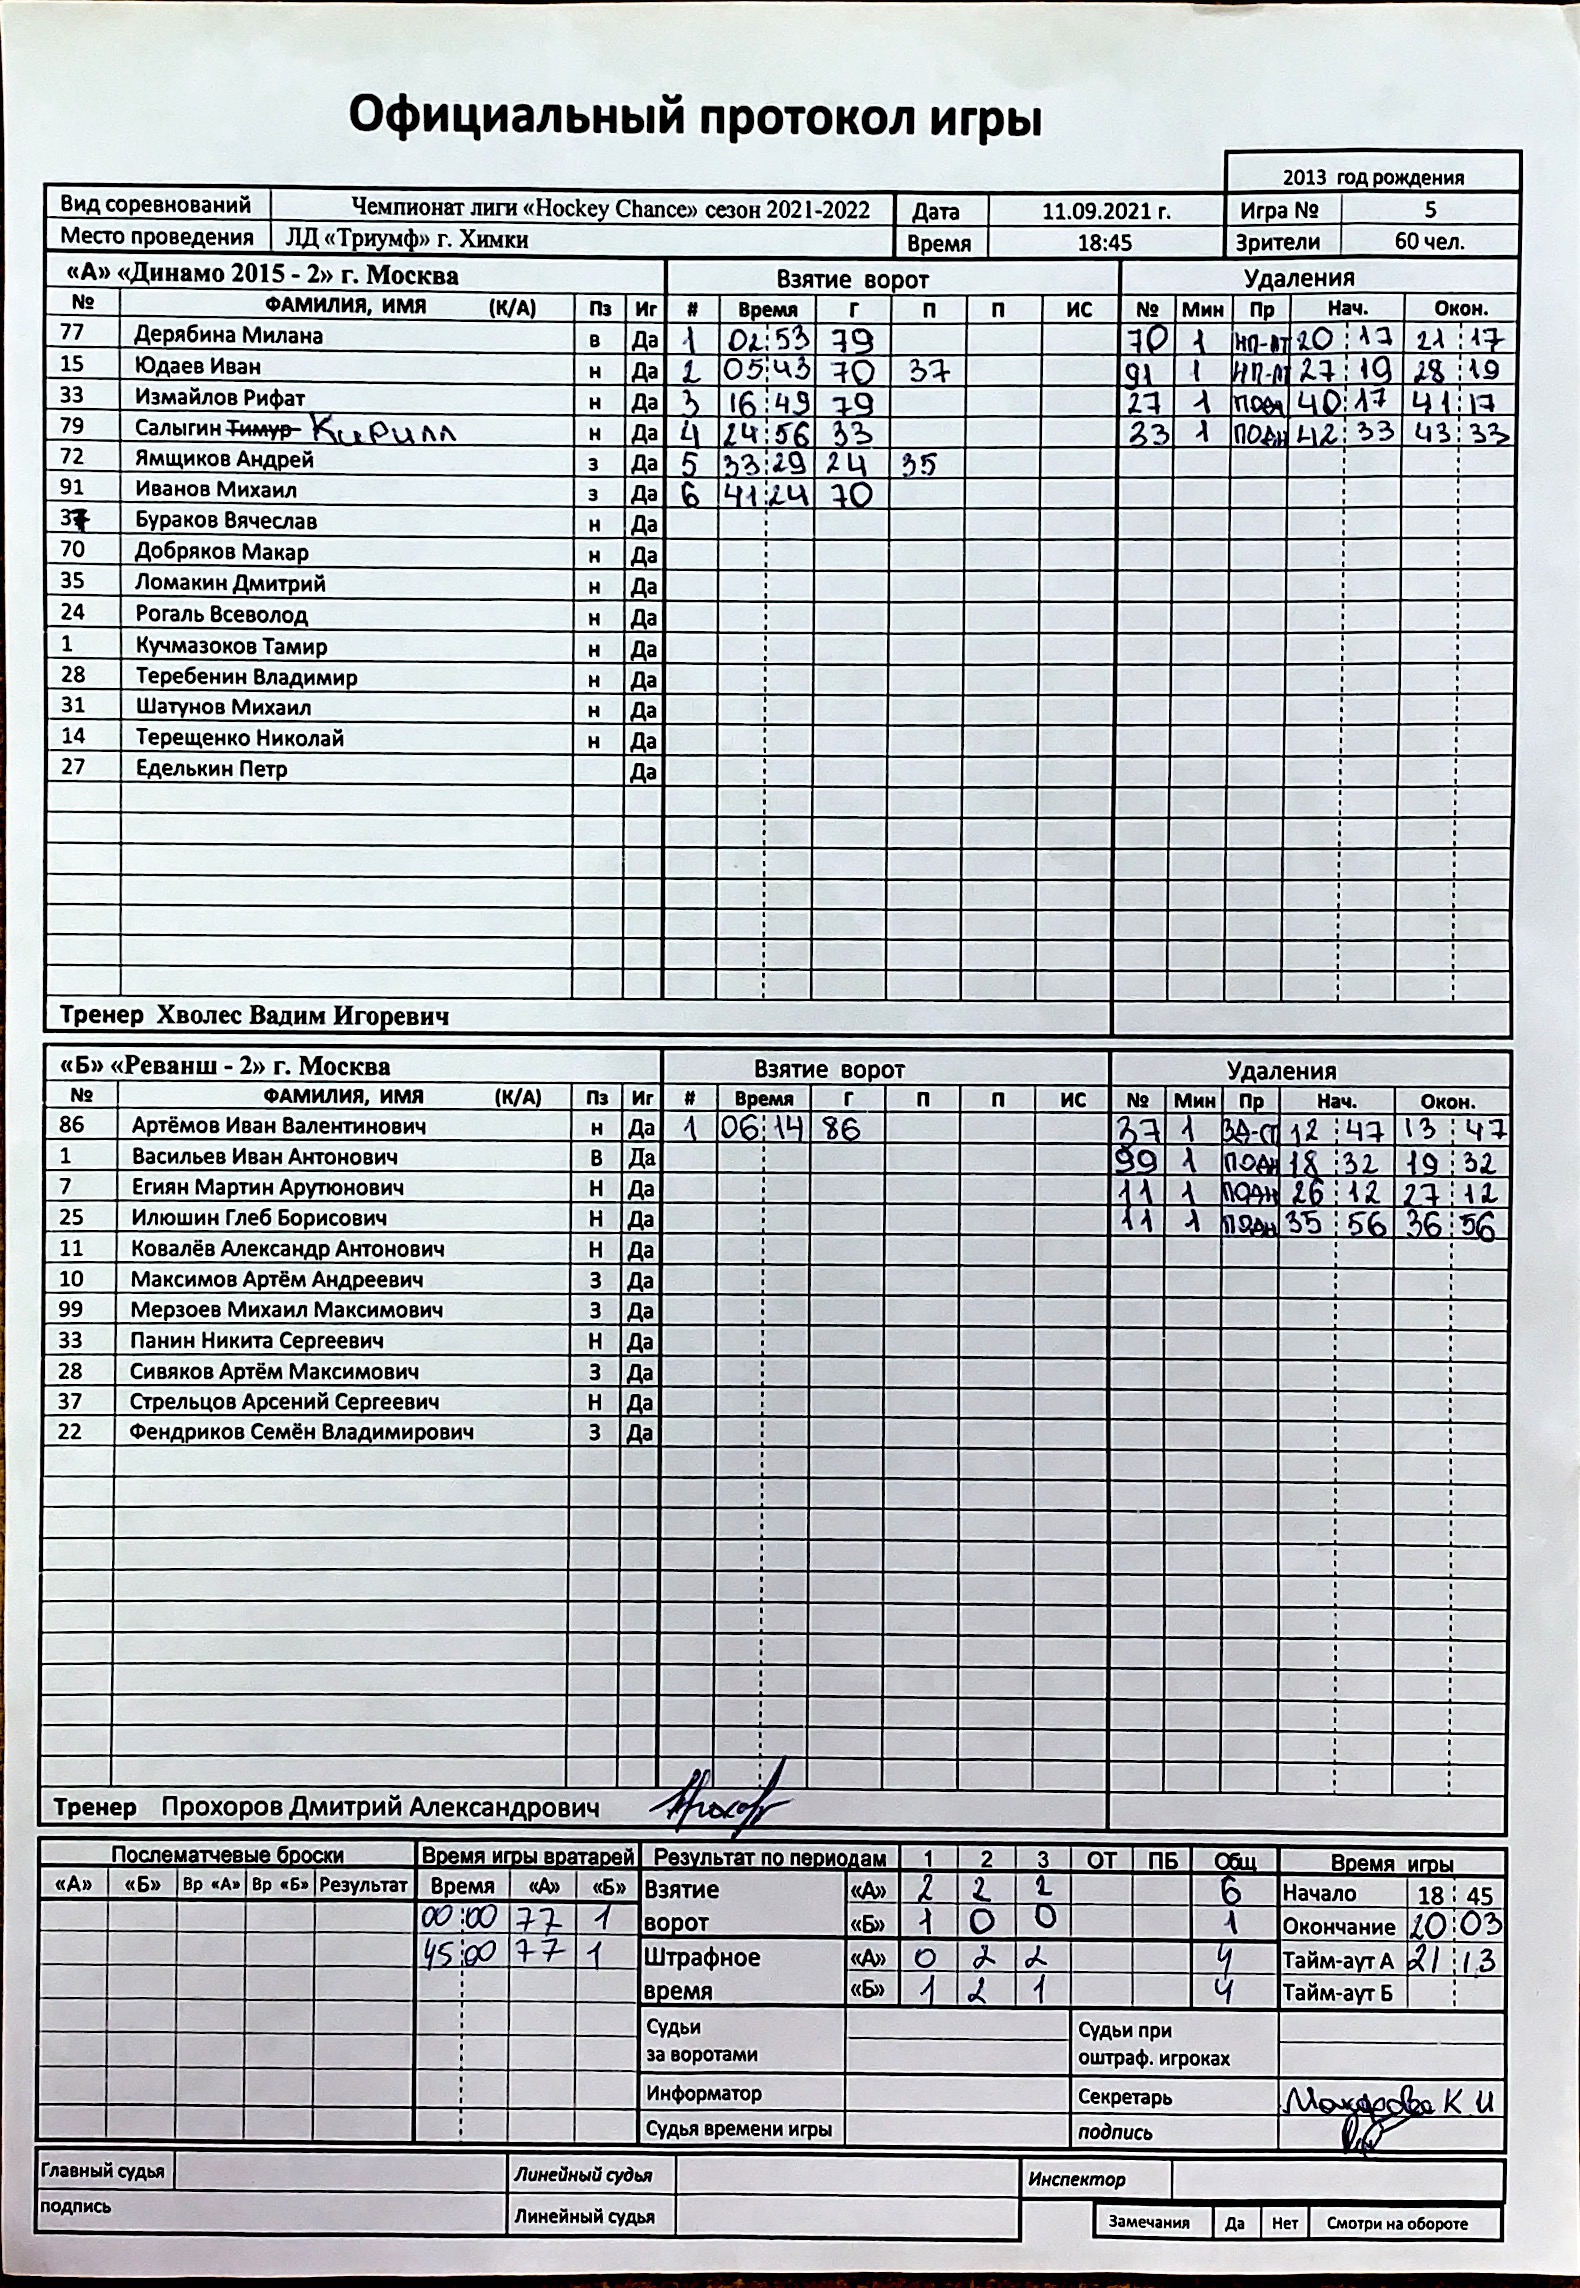 Официальный протокол игры
2013 год рождения
Вид соревнований Чемпионат лиги «Hockey Chance» сезон 2021-2022 Дата 11.09.2021 г. Игра № 5
Место проведения ЛД «Триумф» г. Химки Время 18:45 Зрители 60 чел.
«А» «Динамо 2015 - 2» г. Москва Взятие ворот Удаления
№ ФАМИЛИЯ, ИМЯ (К/А) Пз Иг # Время Г П П ИС № Мин Пр Нач. Окон.
77 Дерябина Милана в Да 1 02:53 79 70 1 НП-АТ 20:17 21:17
15 Юдаев Иван н Да 2 05:43 70 37 91 1 НП-АТ 27:19 28:19
33 Измайлов Рифат н Да 3 16:49 79 27 1 ПОДН 40:17 41:17
79 Салыгин Тимур Кирилл н Да 4 24:56 33 33 1 ПОДН 42:33 43:33
72 Ямщиков Андрей з Да 5 33:29 24 35
91 Иванов Михаил з Да 6 41:24 70
37 Бураков Вячеслав н Да
70 Добряков Макар н Да
35 Ломакин Дмитрий н Да
24 Рогаль Всеволод н Да
1 Кучмазоков Тамир н Да
28 Теребенин Владимир н Да
31 Шатунов Михаил н Да
14 Терещенко Николай н Да
27 Еделькин Петр Да
Тренер Хволес Вадим Игоревич
«Б» «Реванш - 2» г. Москва Взятие ворот Удаления
№ ФАМИЛИЯ, ИМЯ (К/А) Пз Иг # Время Г П П ИС № Мин Пр Нач. Окон.
86 Артёмов Иван Валентинович н Да 1 06:14 86 37 1 ЗД-СТ 12:47 13:47
1 Васильев Иван Антонович В Да 99 1 ПОДН 18:32 19:32
7 Егиян Мартин Арутюнович Н Да 11 1 ПОДН 26:12 27:12
25 Илюшин Глеб Борисович Н Да 11 1 ПОДН 35:56 36:56
11 Ковалёв Александр Антонович Н Да
10 Максимов Артём Андреевич З Да
99 Мерзоев Михаил Максимович З Да
33 Панин Никита Сергеевич Н Да
28 Сивяков Артём Максимович З Да
37 Стрельцов Арсений Сергеевич Н Да
22 Фендриков Семён Владимирович З Да
Тренер Прохоров Дмитрий Александрович
Послематчевые броски Время игры вратарей Результат по периодам 1 2 3 ОТ ПБ Общ Время игры
«А» «Б» Вр «А» Вр «Б» Результат Время «А» «Б» Взятие «А» 2 2 2 6 Начало 18:45
00:00 77 1 ворот «Б» 1 0 0 1 Окончание 20:03
45:00 77 1 Штрафное «А» 0 2 2 4 Тайм-аут А 21:13
время «Б» 1 2 1 4 Тайм-аут Б
Судьи за воротами Судьи при оштраф. игроках
Информатор Секретарь Макарова К И
Судья времени игры подпись
Главный судья Линейный судья Инспектор
подпись Линейный судья Замечания Да Нет Смотри на обороте